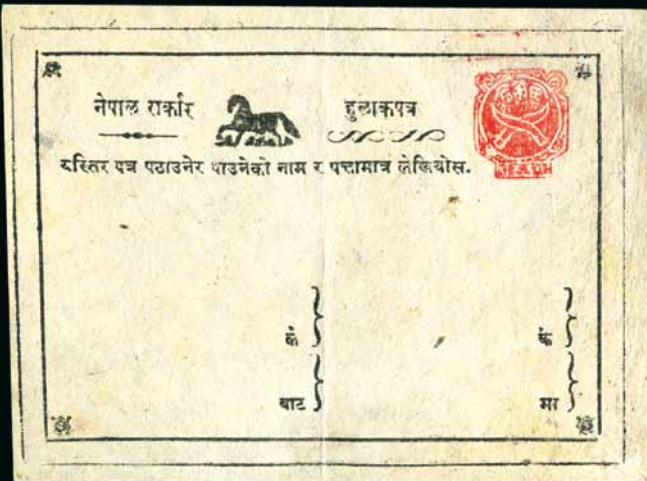 नेपाल सर्कार हुलाकपत्र
यस्तिर पत्र पठाउनेर पाउनेको नाम र पत्तामात्र लेखियोस.
कं कं
बाट मा